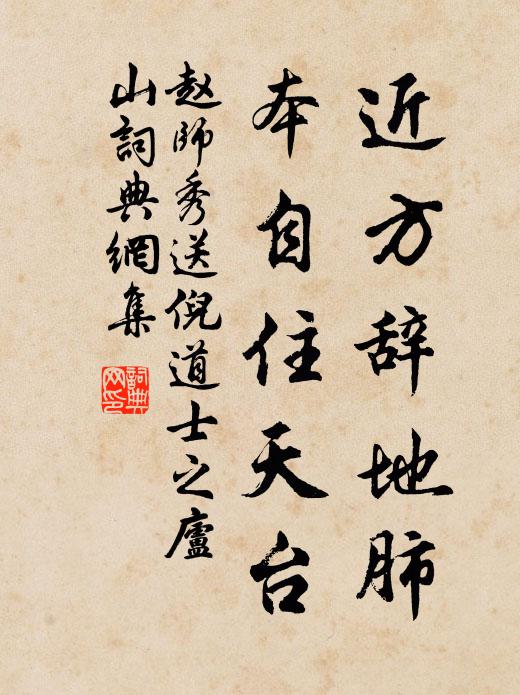 近方辞地肺
本自住天台
赵师秀送倪道士之廬
山詞典網集
詞典網印